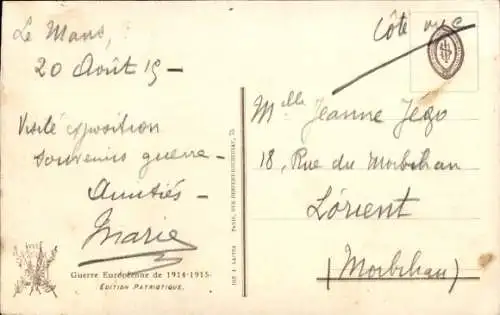 Le Mans,
20 Août 15 –
Visité exposition
souvenirs guerre –
Amitiés –
Marie
Guerre Européenne de 1914-1915-
ÉDITION PATRIOTIQUE.
Côté vue
Melle Jeanne Jégo
18, Rue du Morbihan
Lorient
(Morbihan)